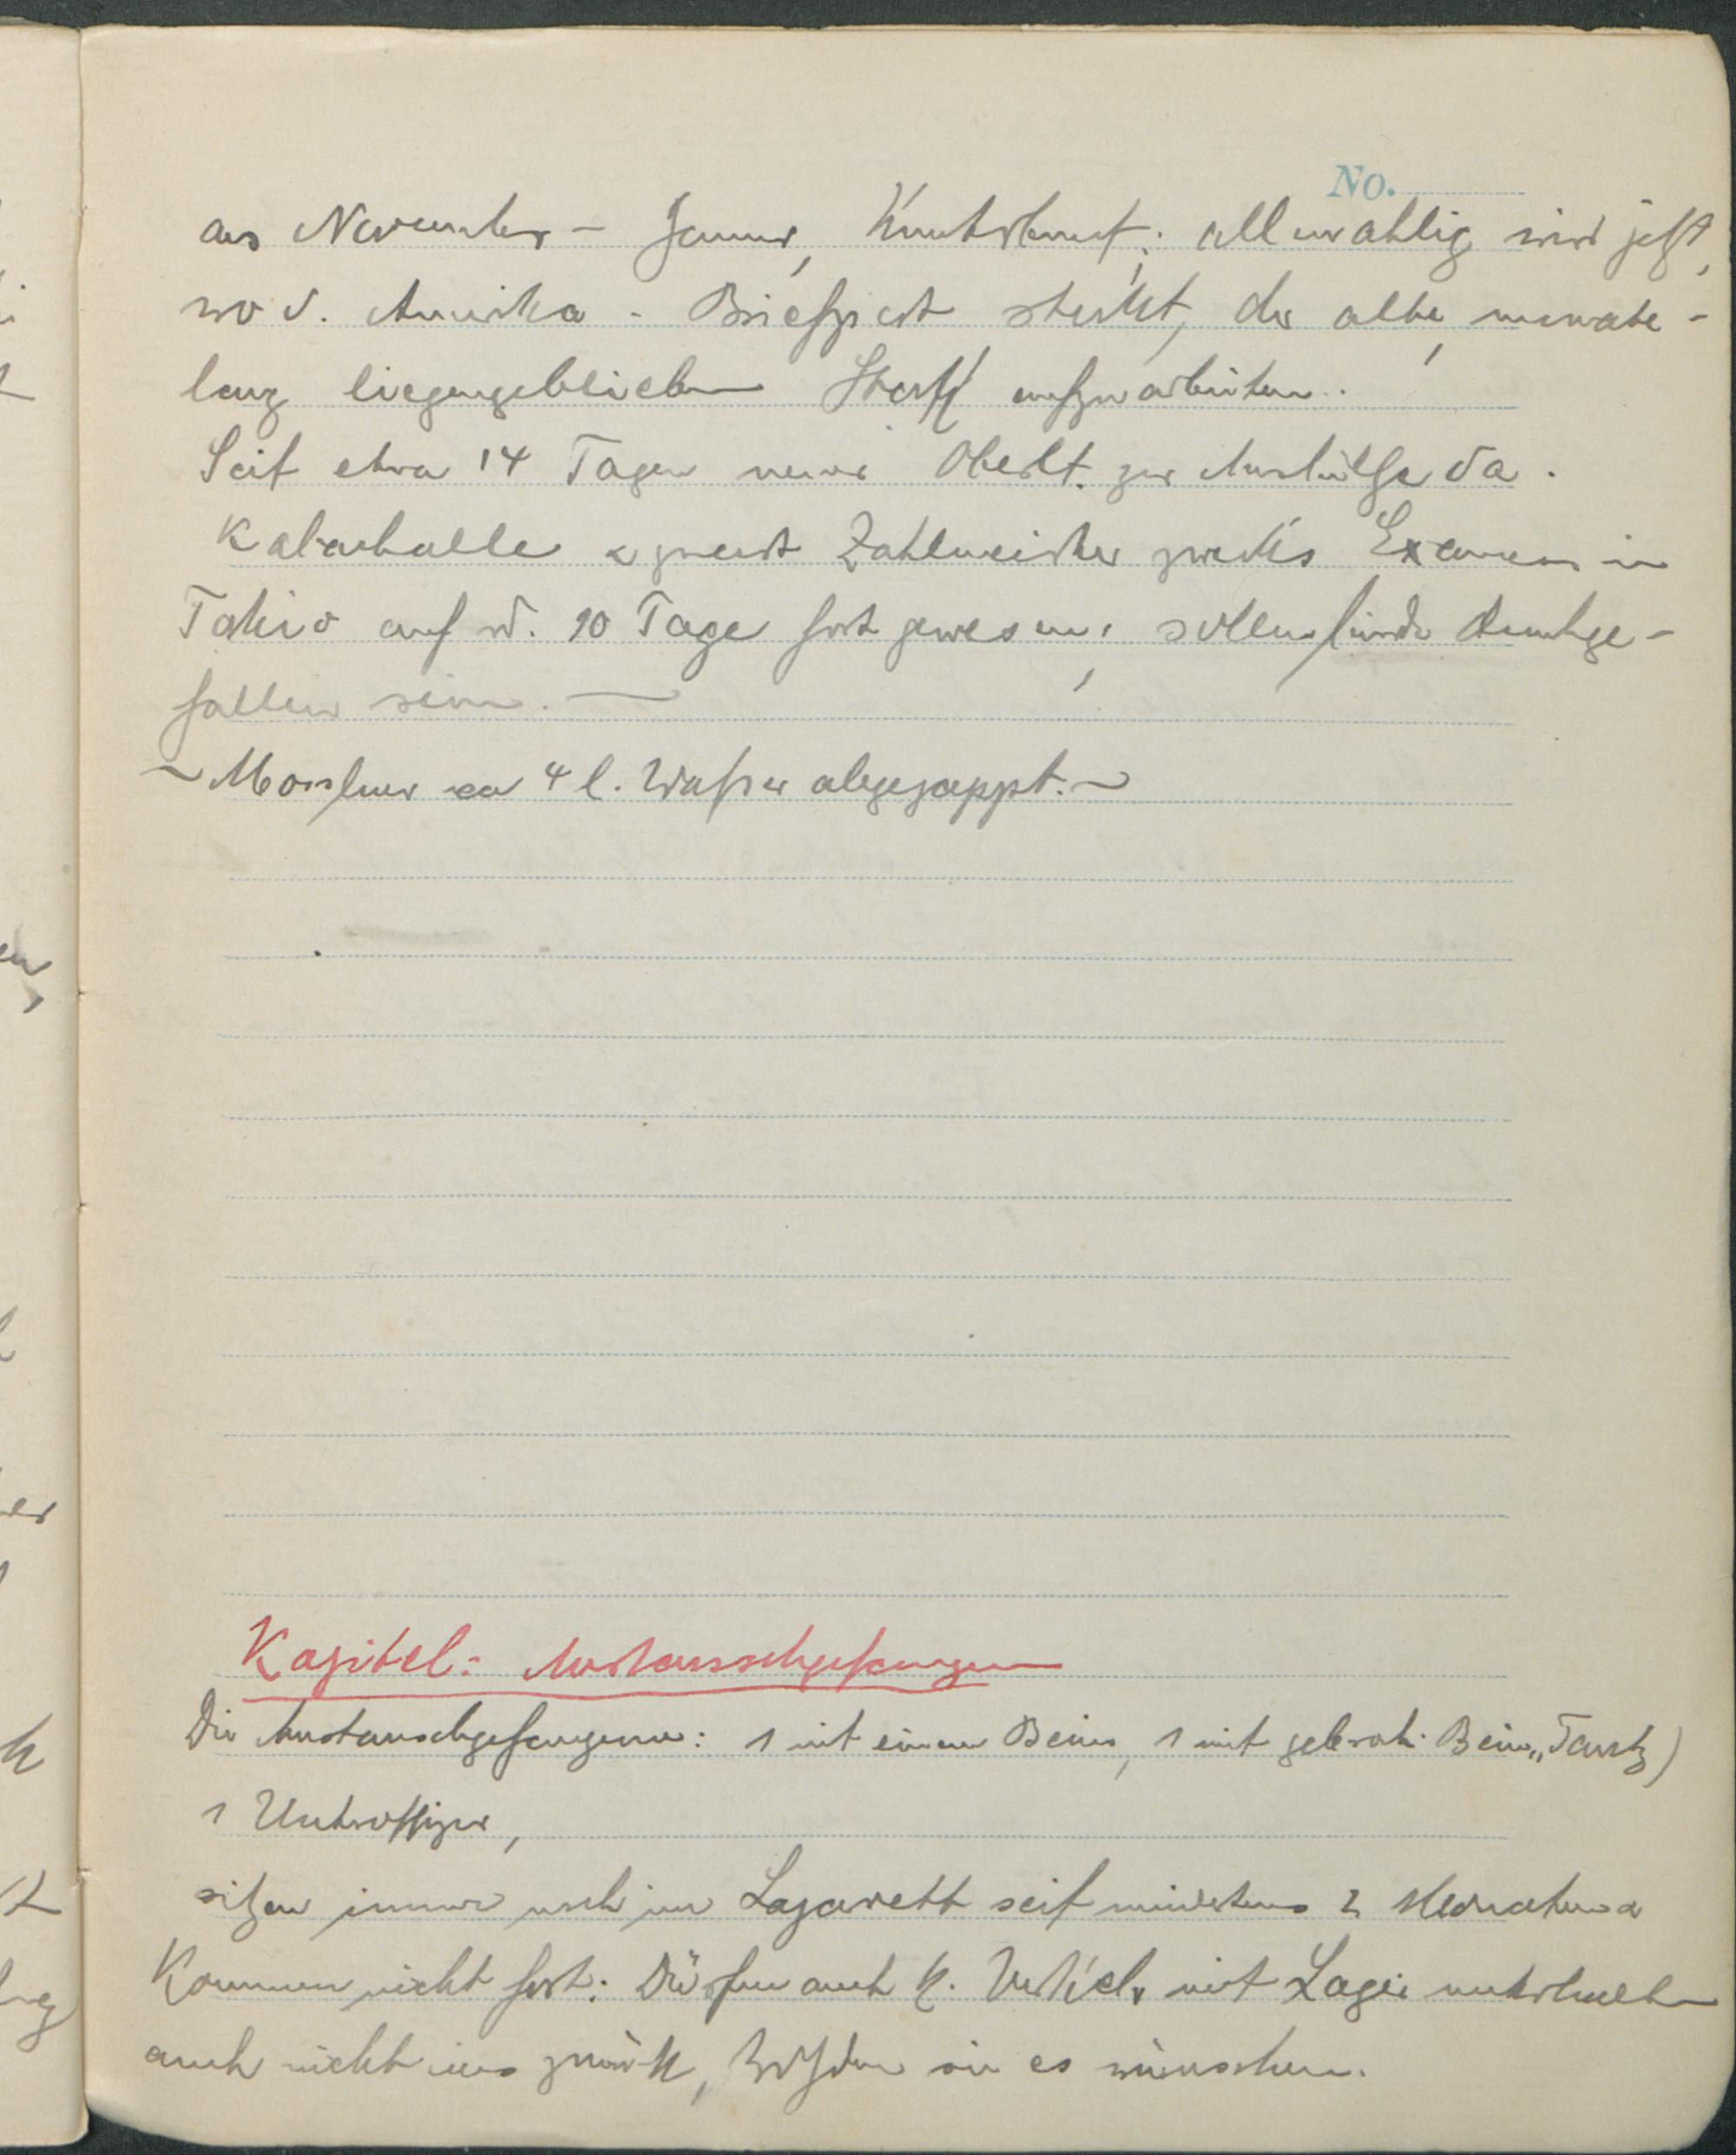 No.
aus November – Januar, allmahlig wird jetzt,
wo d. Amerika-Briefpost stockt, der alte, monate-
lang liegengeblieben Stoff aufzuarbeiten.
Seit etwa 14 Tagen neuer Oberlt. zur Aushülfe da.
Zahlmeister zwecks Examen in
Tokio auf w. 10 Tage fort gewesen; sollen beide durchge-
fallen sein. —
~ ca 4 l. Waßer abgezappt. ~
Kapitel: Austauschgefangene
Die Austauschgefangene: 1 mit einem Bein, 1 mit gebroch. Bein
1 Unteroffizier,
sitzen immer noch im Lazarett seit mindestens 2 Monaten &
kommen nicht fort. Dürfen auch k. Verkehr mit Lager unterhalten
auch nicht ins zurück, trotzdem sie es wünschen.